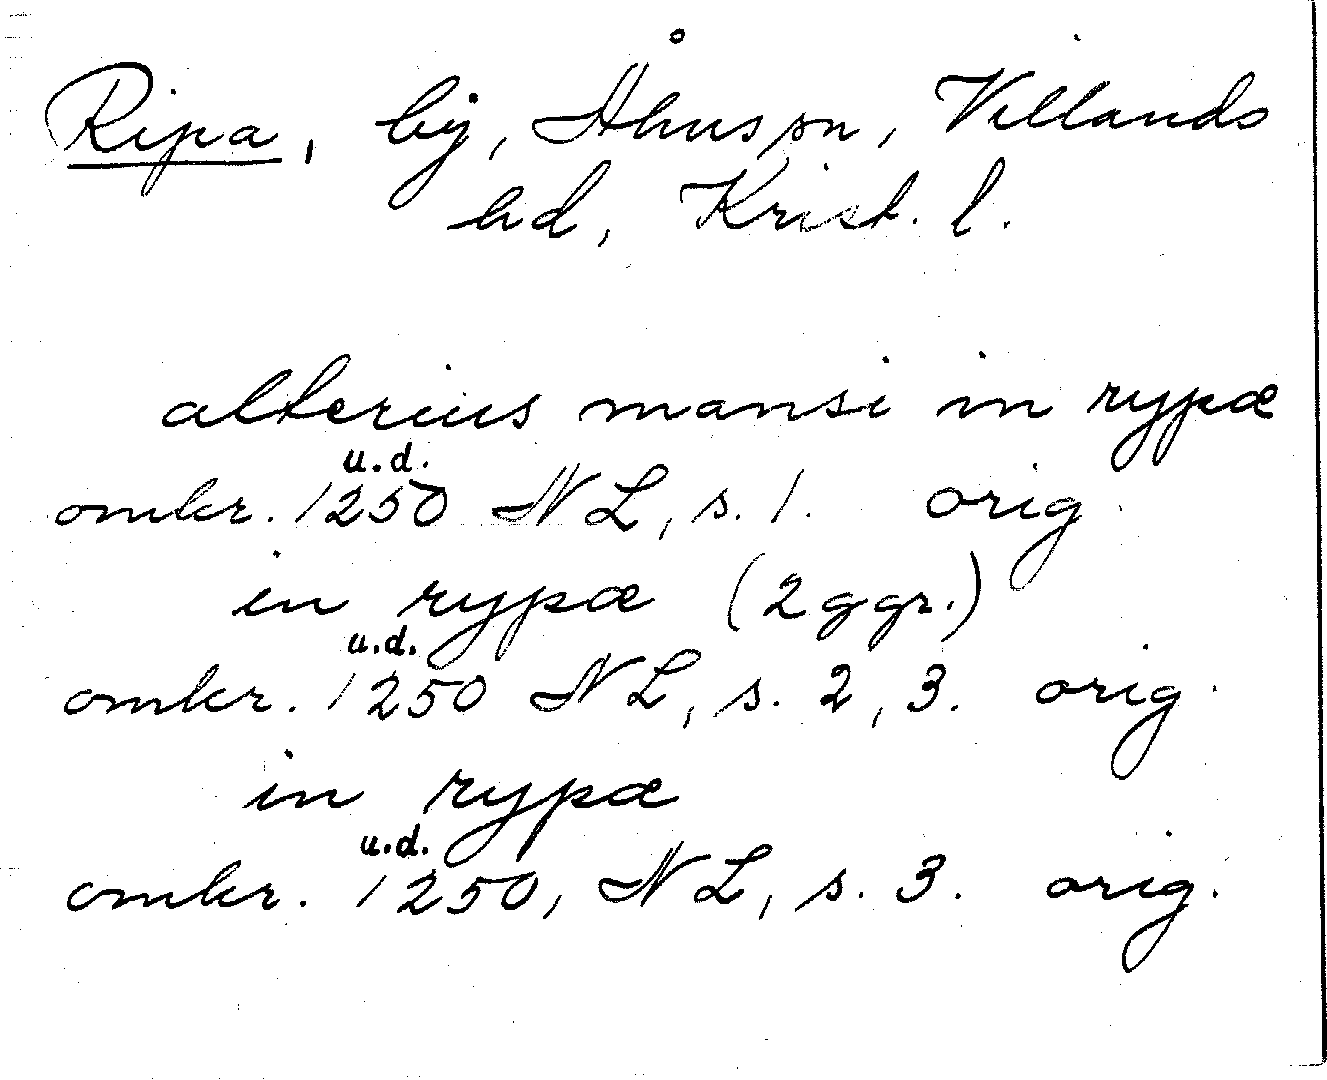 Ripa, by, Åhus sn, Villands
hd, Krist. l.
alterius mansi in rypæ
u.d.
omkr. 1250 NL, s. 1. orig.
in rypæ (2 ggr.)
u.d.
omkr. 1250 NL, s. 2, 3. orig.
in rypæ
u.d.
omkr. 1250, NL, s. 3. orig.